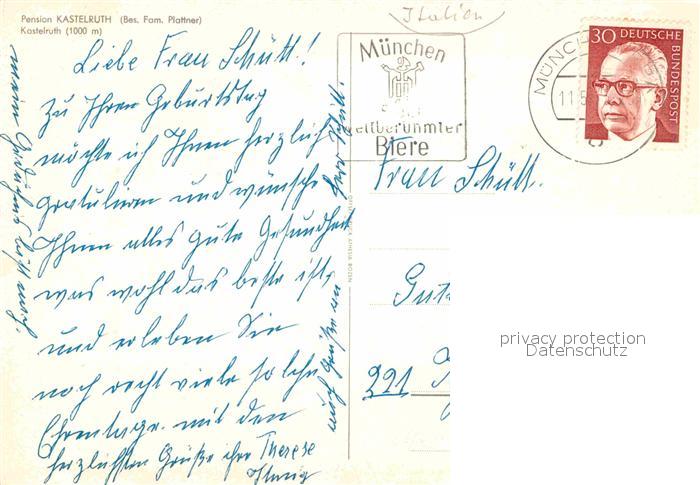 Pension KASTELRUTH (Bes. Fam. Plattner)
Kastelruth (1000 m)
Italien
Liebe Frau Schütt!
Zu Ihren Geburtstag
möchte ich Ihnen herzlich
gratulieren und wünsche
Ihnen alles gute Gesundheit
was wohl das beste ist,
und erleben Sie
noch recht viele solche
Ehrentage. mit den
herzlichsten Grüße ihre Therese
auch Grüße an Herr Schütt.
München
weltberühmter
Biere
MÜNCH
11.
30 DEUTSCHE
BUNDESPOST
Frau Schütt.
221
privacy protection
Datenschutz